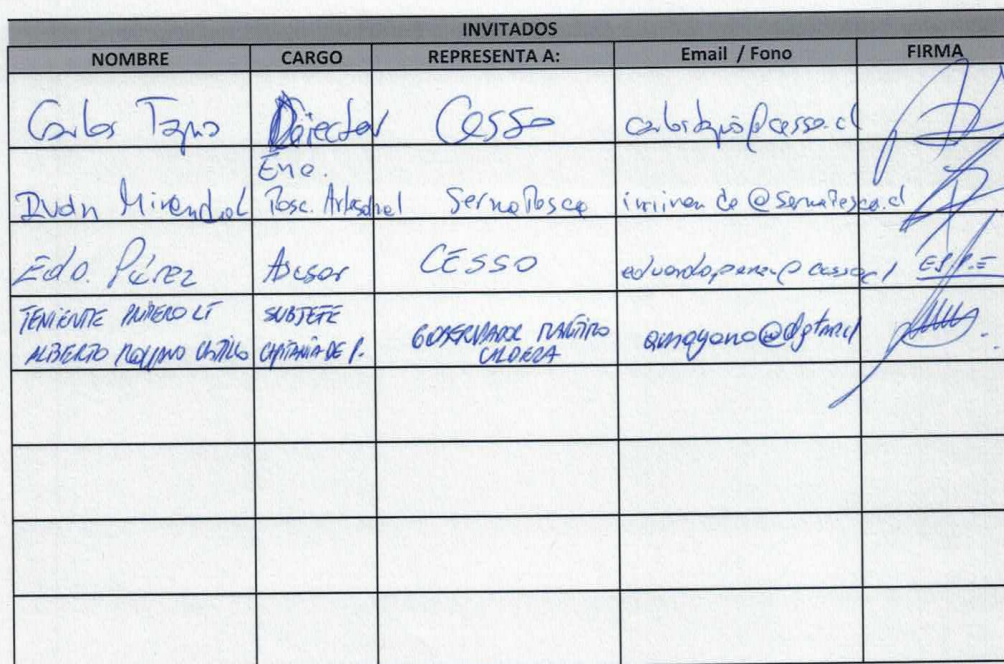 INVITADOS
NOMBRE CARGO REPRESENTA A: Email / Fono FIRMA
Carlos Tapia Director Cesso carlostapia@cesso.cl
Enc.
Iván Miranda Pesc. Artesanal SernaPesca @sernapesca.cl
Edo. Pérez Asesor CESSO eduardo.perez@cesso.cl
TENIENTE PRIMERO LT SUBJEFE
ALBERTO CASTILLO CAPITANÍA DE P. GOBERNADOR MARÍTIMO
CALDERA